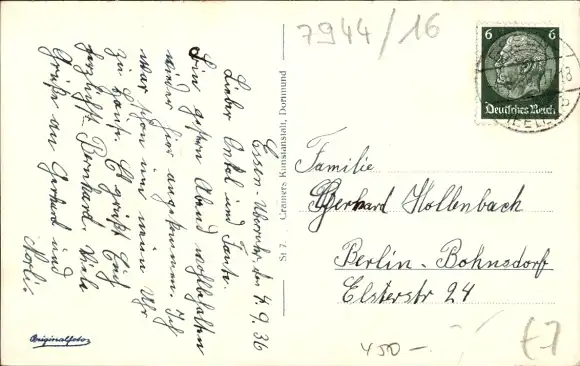 7944/16
6 6
Deutsches Reich
Essen-Überruhr, den 4.9.36
Lieber Onkel und Tante.
Bin gestern Abend wohlbehalten
wieder hier angekommen. Ich
war schon um neun Uhr
zu Hause. Es grüßt Euch
herzlichst Bernhard. Viele
Grüße an Gerhard und
St 7. Cramers Kunstanstalt, Dortmund
Familie
Gerhard Hollenbach
Berlin-Bohnsdorf
Elsterstr 24
Originalfoto
450-
£7